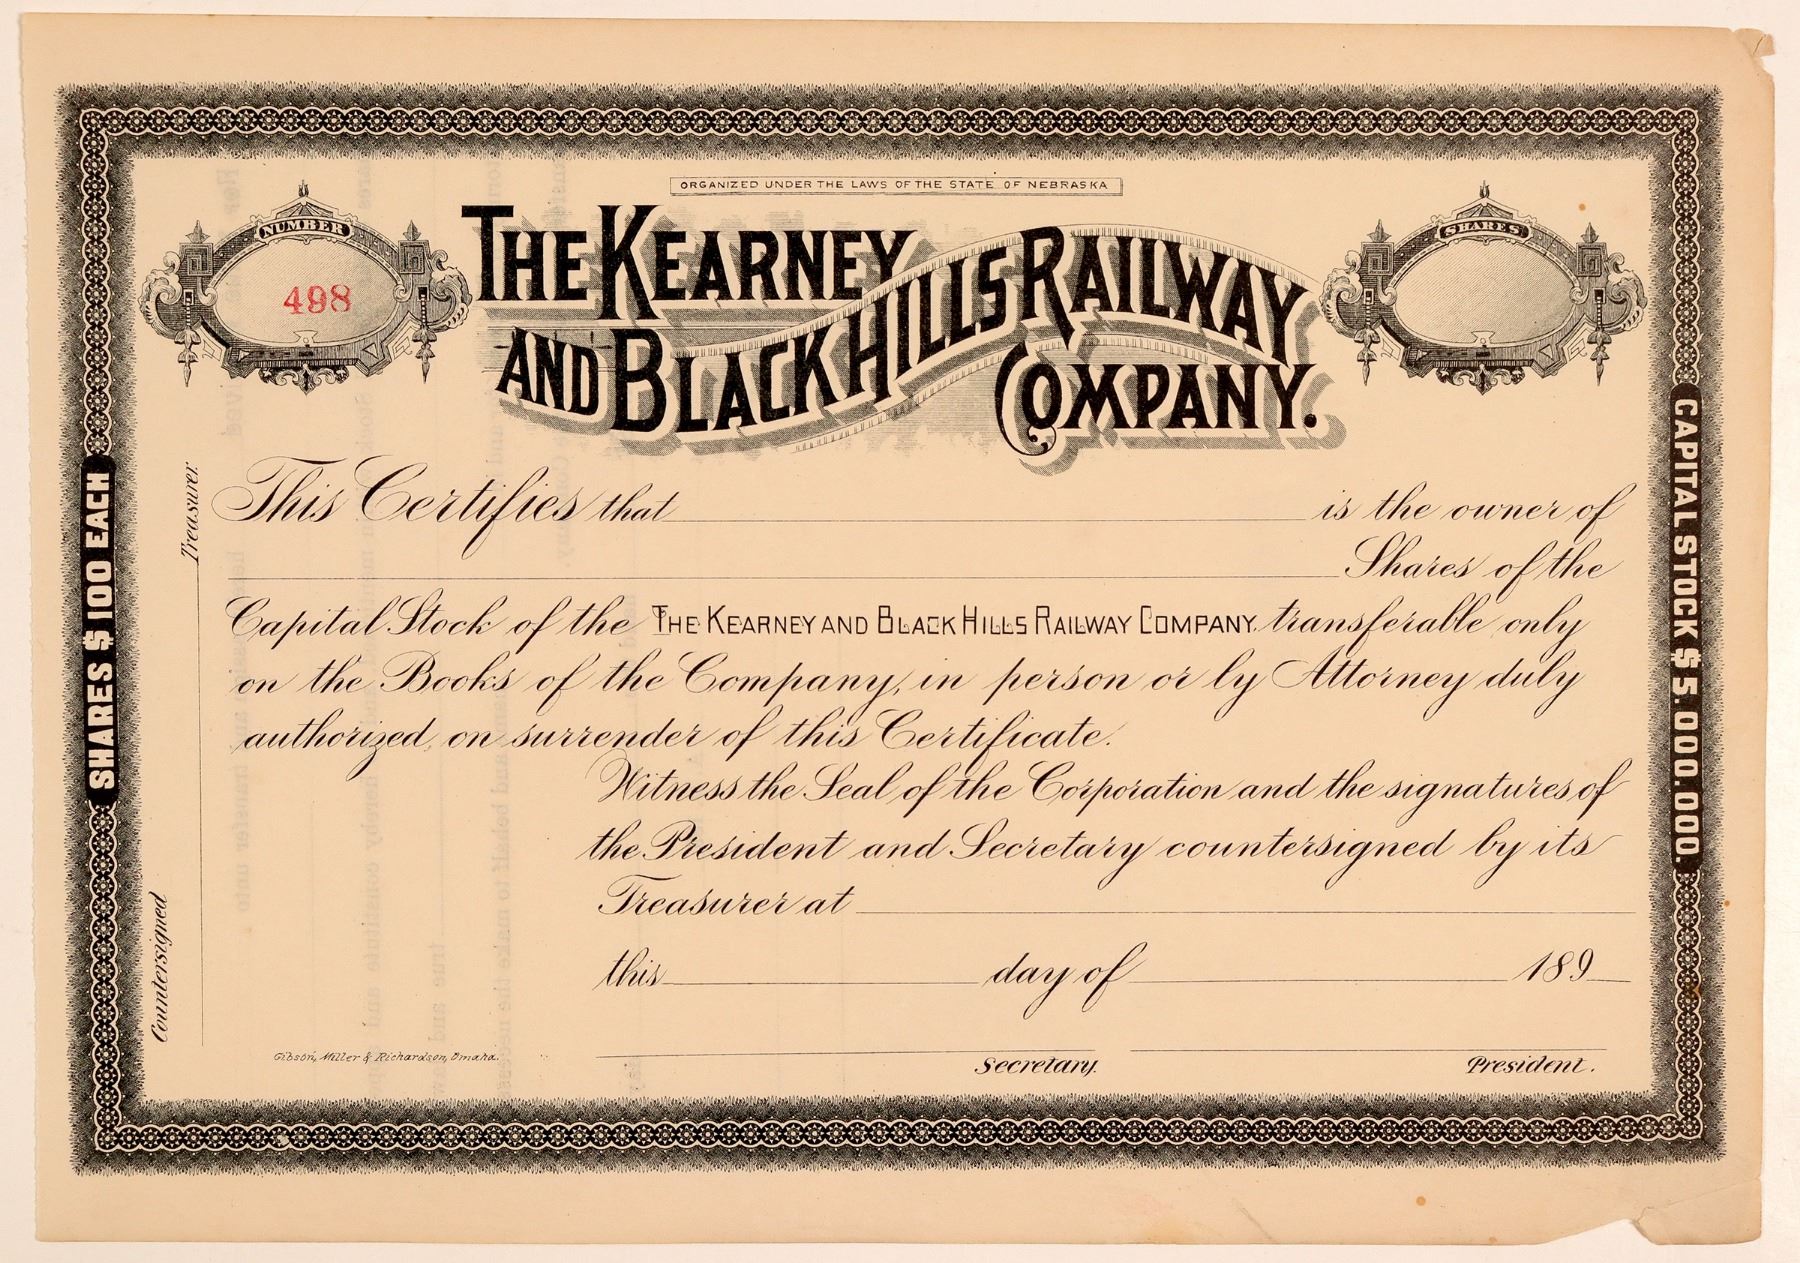 ORGANIZED UNDER THE LAWS OF THE STATE OF NEBRASKA
NUMBER
498
THE KEARNEY
AND BLACK HILLS RAILWAY
COMPANY.
SHARES
This Certifies that is the owner of
Shares of the
Capital Stock of the THE KEARNEY AND BLACK HILLS RAILWAY COMPANY. transferable only
on the Books of the Company, in person or by Attorney duly
authorized, on surrender of this Certificate.
Witness the Seal of the Corporation and the signatures of
the President and Secretary countersigned by its
Treasurer at
this day of 189
Secretary.
President.
Gibson, Miller & Richardson, Omaha.
Countersigned
Treasurer.
SHARES $100 EACH
CAPITAL STOCK $5,000,000.